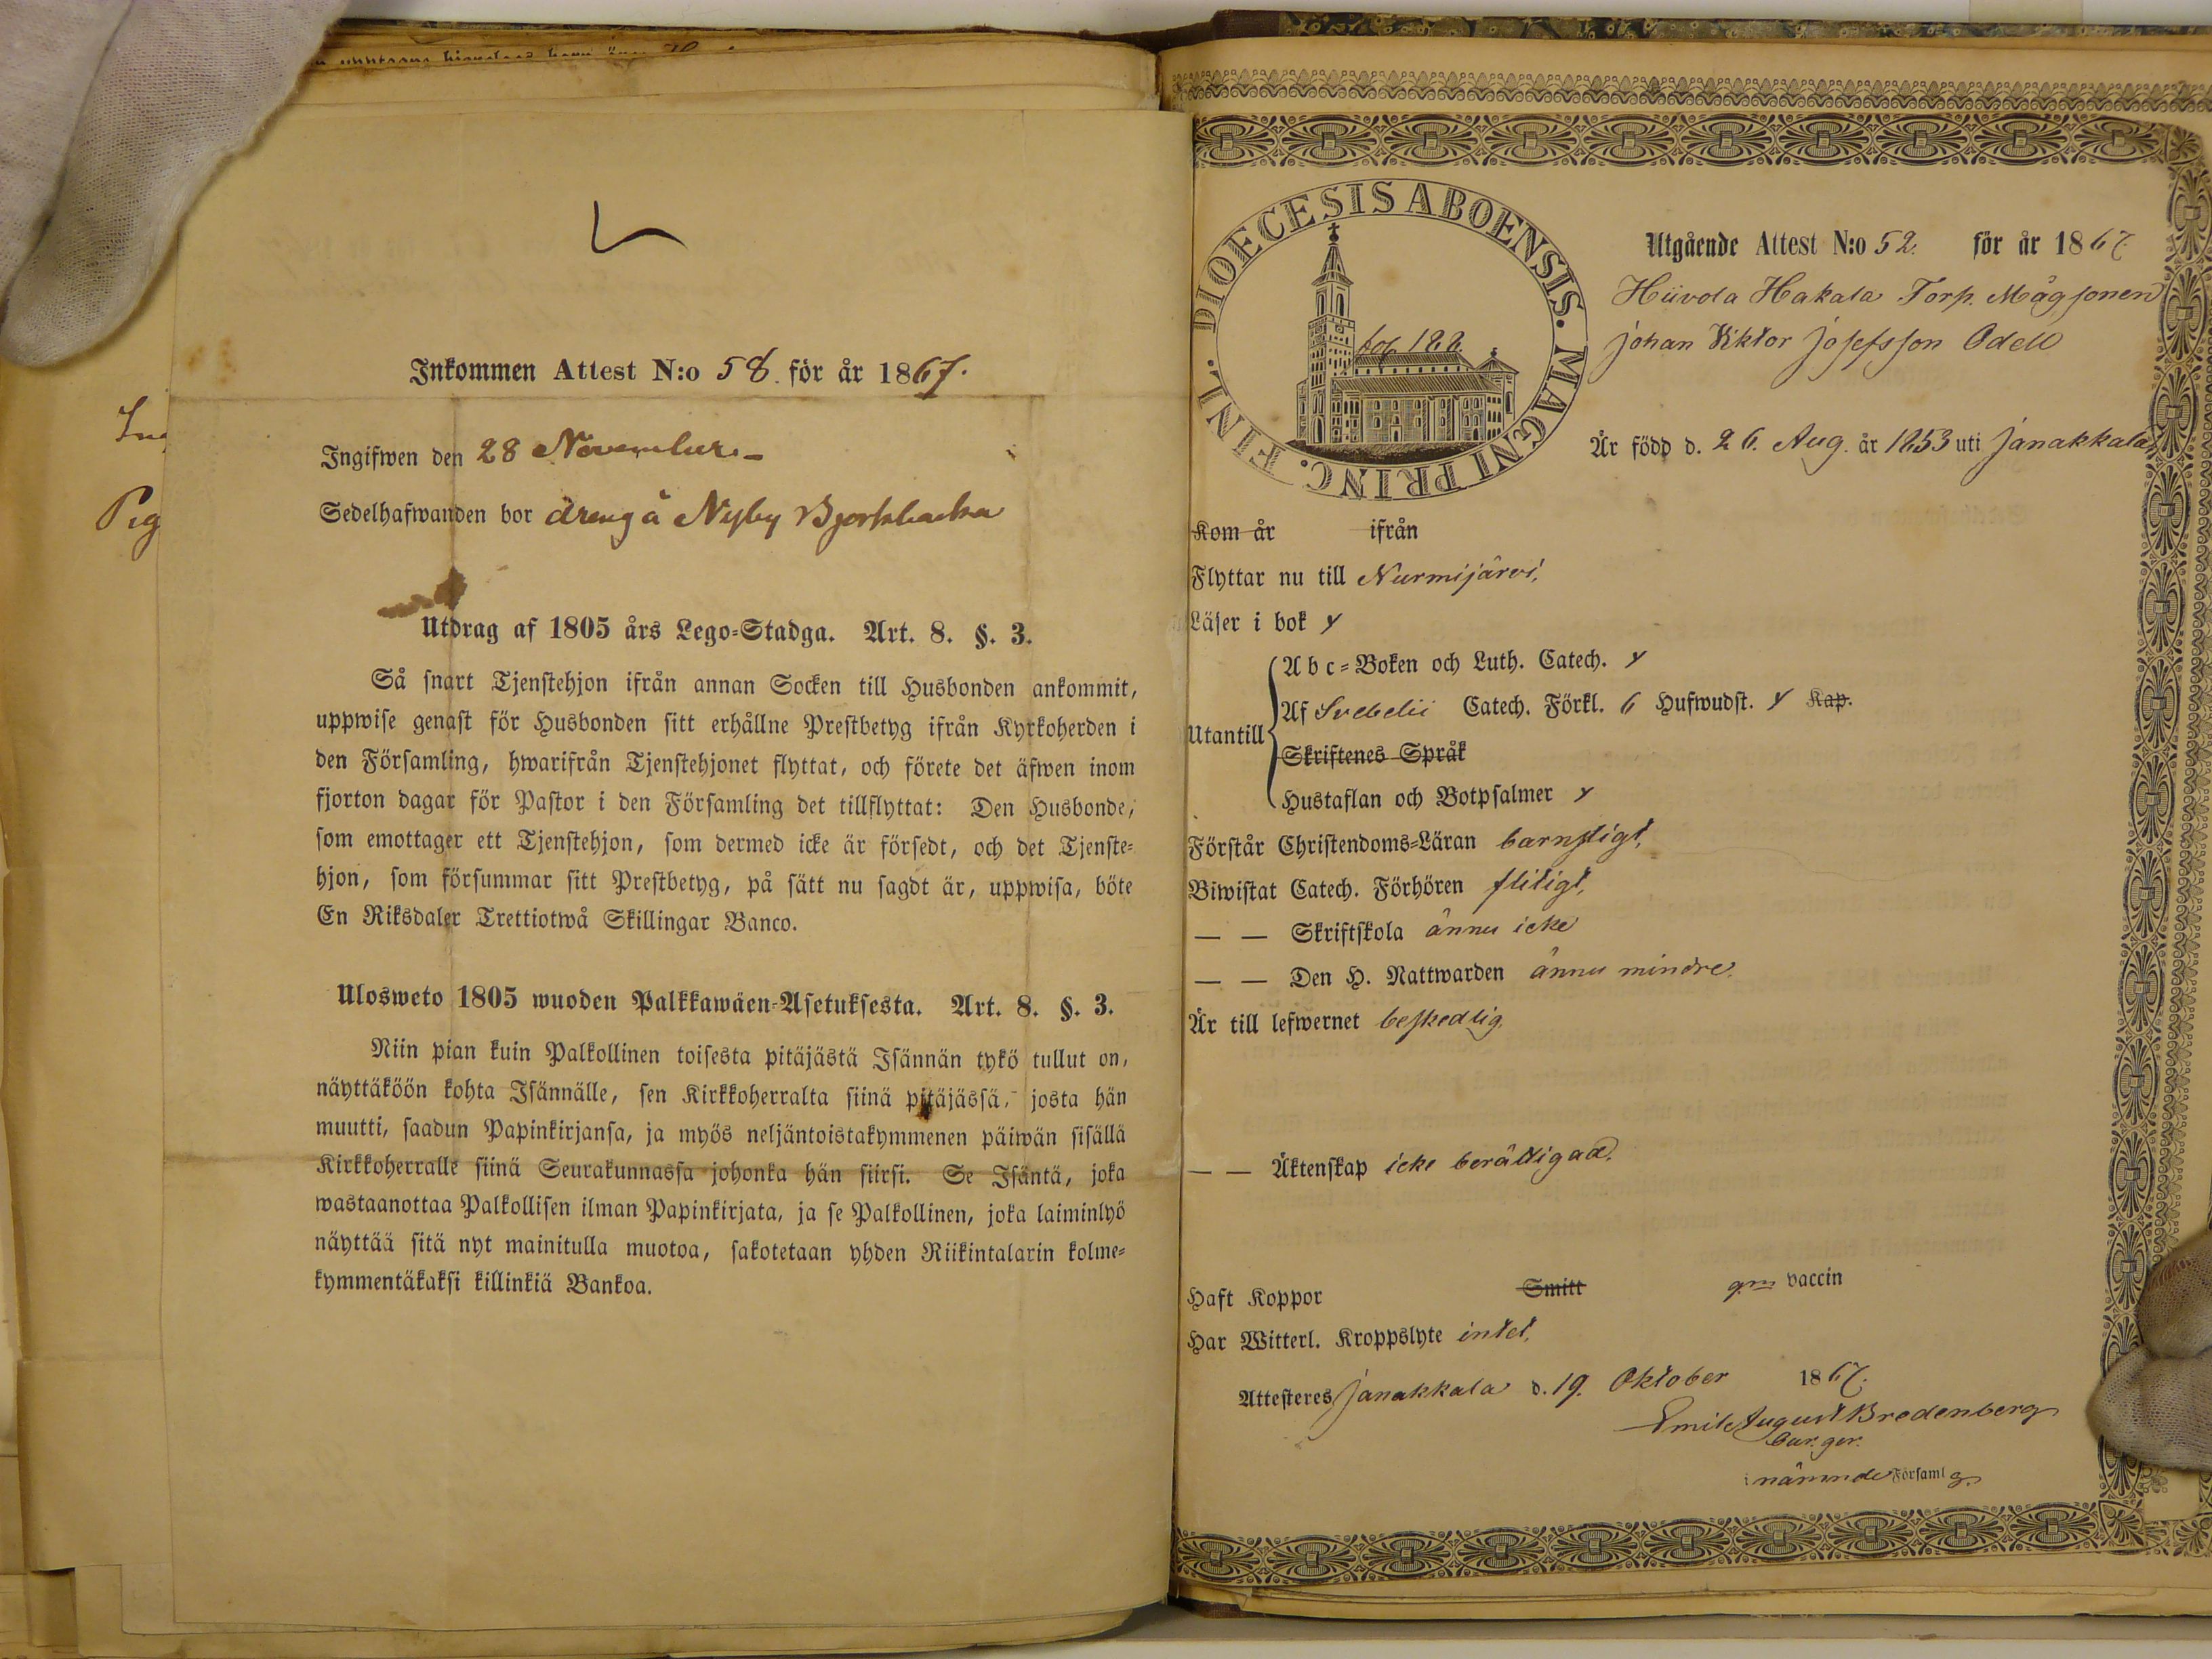 Inkommen Attest N:o 58. för år 1867.
Ingifwen den 28 November.
Sedelhafwanden bor dreng å Nyby Bjorkbacka
Utdrag af 1805 års Lego-Stadga. Art. 8. §. 3.
Så snart Tjenstehjon ifrån annan Socken till Husbonden ankommit,
uppwise genast för Husbonden sitt erhållne Prestbetyg ifrån Kyrkoherden i
den Församling, hwarifrån Tjenstehjonet flyttat, och förete det äfwen inom
fjorton dagar för Pastor i den Församling det tillflyttat: Den Husbonde,
som emottager ett Tjenstehjon, som dermed icke är försedt, och det Tjenste-
hjon, som försummar sitt Prestbetyg, på sätt nu sagdt är, uppwisa, böte
En Riksdaler Trettiotwå Skillingar Banco.
Ulosweto 1805 wuoden Palkkawäen-Asetuksesta. Art. 8. §. 3.
Niin pian kuin Palkollinen toisesta pitäjästä Isännän tykö tullut on,
näyttäköön kohta Isännälle, sen Kirkkoherralta siinä pitäjässä, josta hän
muutti, saadun Papinkirjansa, ja myös neljäntoistakymmenen päiwän sisällä
Kirkkoherralle siinä Seurakunnassa johonka hän siirsi. Se Isäntä, joka
wastaanottaa Palkollisen ilman Papinkirjata, ja se Palkollinen, joka laiminlyö
näyttää sitä nyt mainitulla muotoa, sakotetaan yhden Riikintalarin kolme-
kymmentäkaksi killinkiä Bankoa.
Pig
DIOECESIS ABOENSIS. MAGNI PRINC. FINL.
Utgående Attest N:o 52. för år 1867
Hiivola Hakala Torp. Mågsonen
Johan Viktor Josefsson Odell
fog. 122.
Är född d. 26. Aug. år 1853 uti Janakkala,
Kom år ifrån
Flyttar nu till Nurmijärvi,
Läser i bok y
Utantill
Abc-Boken och Luth. Catech. y
Af Svebelii Catech. Förkl. 6 Hufwudst. y Kap.
Skriftenes Språk
Hustaflan och Botpsalmer y
Förstår Christendoms-Läran barnsligt,
Biwistat Catech. Förhören flitigt,
— — Skriftskola ännu icke
— — Den H. Nattwarden ännu mindre.
Är till lefwernet beskedlig.
— — Äktenskap icke berättigad.
Haft Koppor Smitt gm vaccin
Har Witterl. Kroppslyte intet,
Attesteras Janakkala d. 19. Oktober 1867.
Emil August Bredenberg
Cur. ger.
i nämnde Församlg.